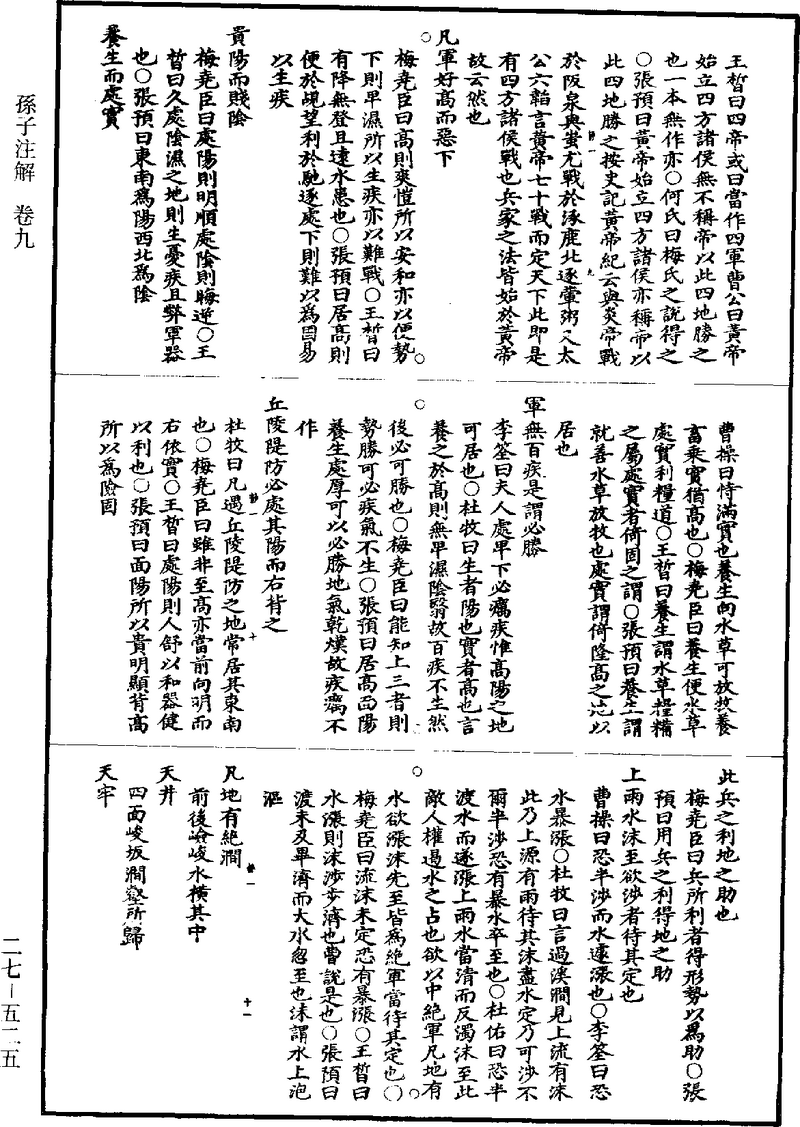 王晳曰四帝或曰當作四軍曹公曰黃帝
始立四方諸侯無不稱帝以此四地勝之
也一本無作亦〇何氏曰梅氏之說得之
〇張預曰黃帝始立四方諸侯亦稱帝以
此四地勝之按史記黃帝紀云與炎帝戰
於阪泉與蚩尤戰於涿鹿北逐葷粥又太
公六韜言黃帝七十戰而定天下此即是
有四方諸侯戰也兵家之法皆始於黃帝
故云然也
凡軍好高而惡下
梅堯臣曰高則爽愷所以安和亦以便勢
下則卑濕所以生疾亦以難戰〇王晳曰
有降無登且遠水患也〇張預曰居高則
便於覘望利於馳逐處下則難以為固易
以生疾
貴陽而賤陰
梅堯臣曰處陽則明順處陰則晦逆〇王
晳曰久處陰濕之地則生憂疾且弊軍器
也〇張預曰東南為陽西北為陰
養生而處實
曹操曰恃滿實也養生向水草可放牧養
畜乘實猶高也〇梅堯臣曰養生便水草
處實利糧道〇王晳曰養生謂水草糧糒
之屬處實者倚固之謂〇張預曰養生謂
就善水草放牧也處實謂倚隆高之地以
居也
軍無百疾是謂必勝
李筌曰夫人處卑下必癘疾惟高陽之地
可居也〇杜牧曰生者陽也實者高也言
養之於高則無卑濕陰翳故百疾不生然
後必可勝也〇梅堯臣曰能知上三者則
勢勝可必疾氣不生〇張預曰居高面陽
養生處厚可以必勝地氣乾熯故疾癘不
作
丘陵隄防必處其陽而右背之
杜牧曰凡遇丘陵隄防之地常居其東南
也〇梅堯臣曰雖非至高亦當前向明而
右依實〇王晳曰處陽則人舒以和器健
以利也〇張預曰面陽所以貴明顯背高
所以為險固
此兵之利地之助也
梅堯臣曰兵所利者得形勢以為助〇張
預曰用兵之利得地之助
上雨水沫至欲涉者待其定也
曹操曰恐半涉而水遽漲也〇李筌曰恐
水暴漲〇杜牧曰言過溪澗見上流有沫
此乃上源有雨待其沫盡水定乃可涉不
爾半涉恐有暴水卒至也〇杜佑曰恐半
渡水而遂漲上雨水當清而反濁沫至此
敵人權遏水之占也欲以中絕軍凡地有
水欲漲沫先至皆為絕軍當待其定也〇
梅堯臣曰流沫未定恐有暴漲〇王晳曰
水漲則沫涉步濟也曹說是也〇張預曰
渡未及畢濟而大水忽至也沫謂水上泡
漚
凡地有絕澗
前後嶮峻水橫其中
天井
四面峻坂澗壑所歸
天牢
孫子注解　卷九
二七—五二五